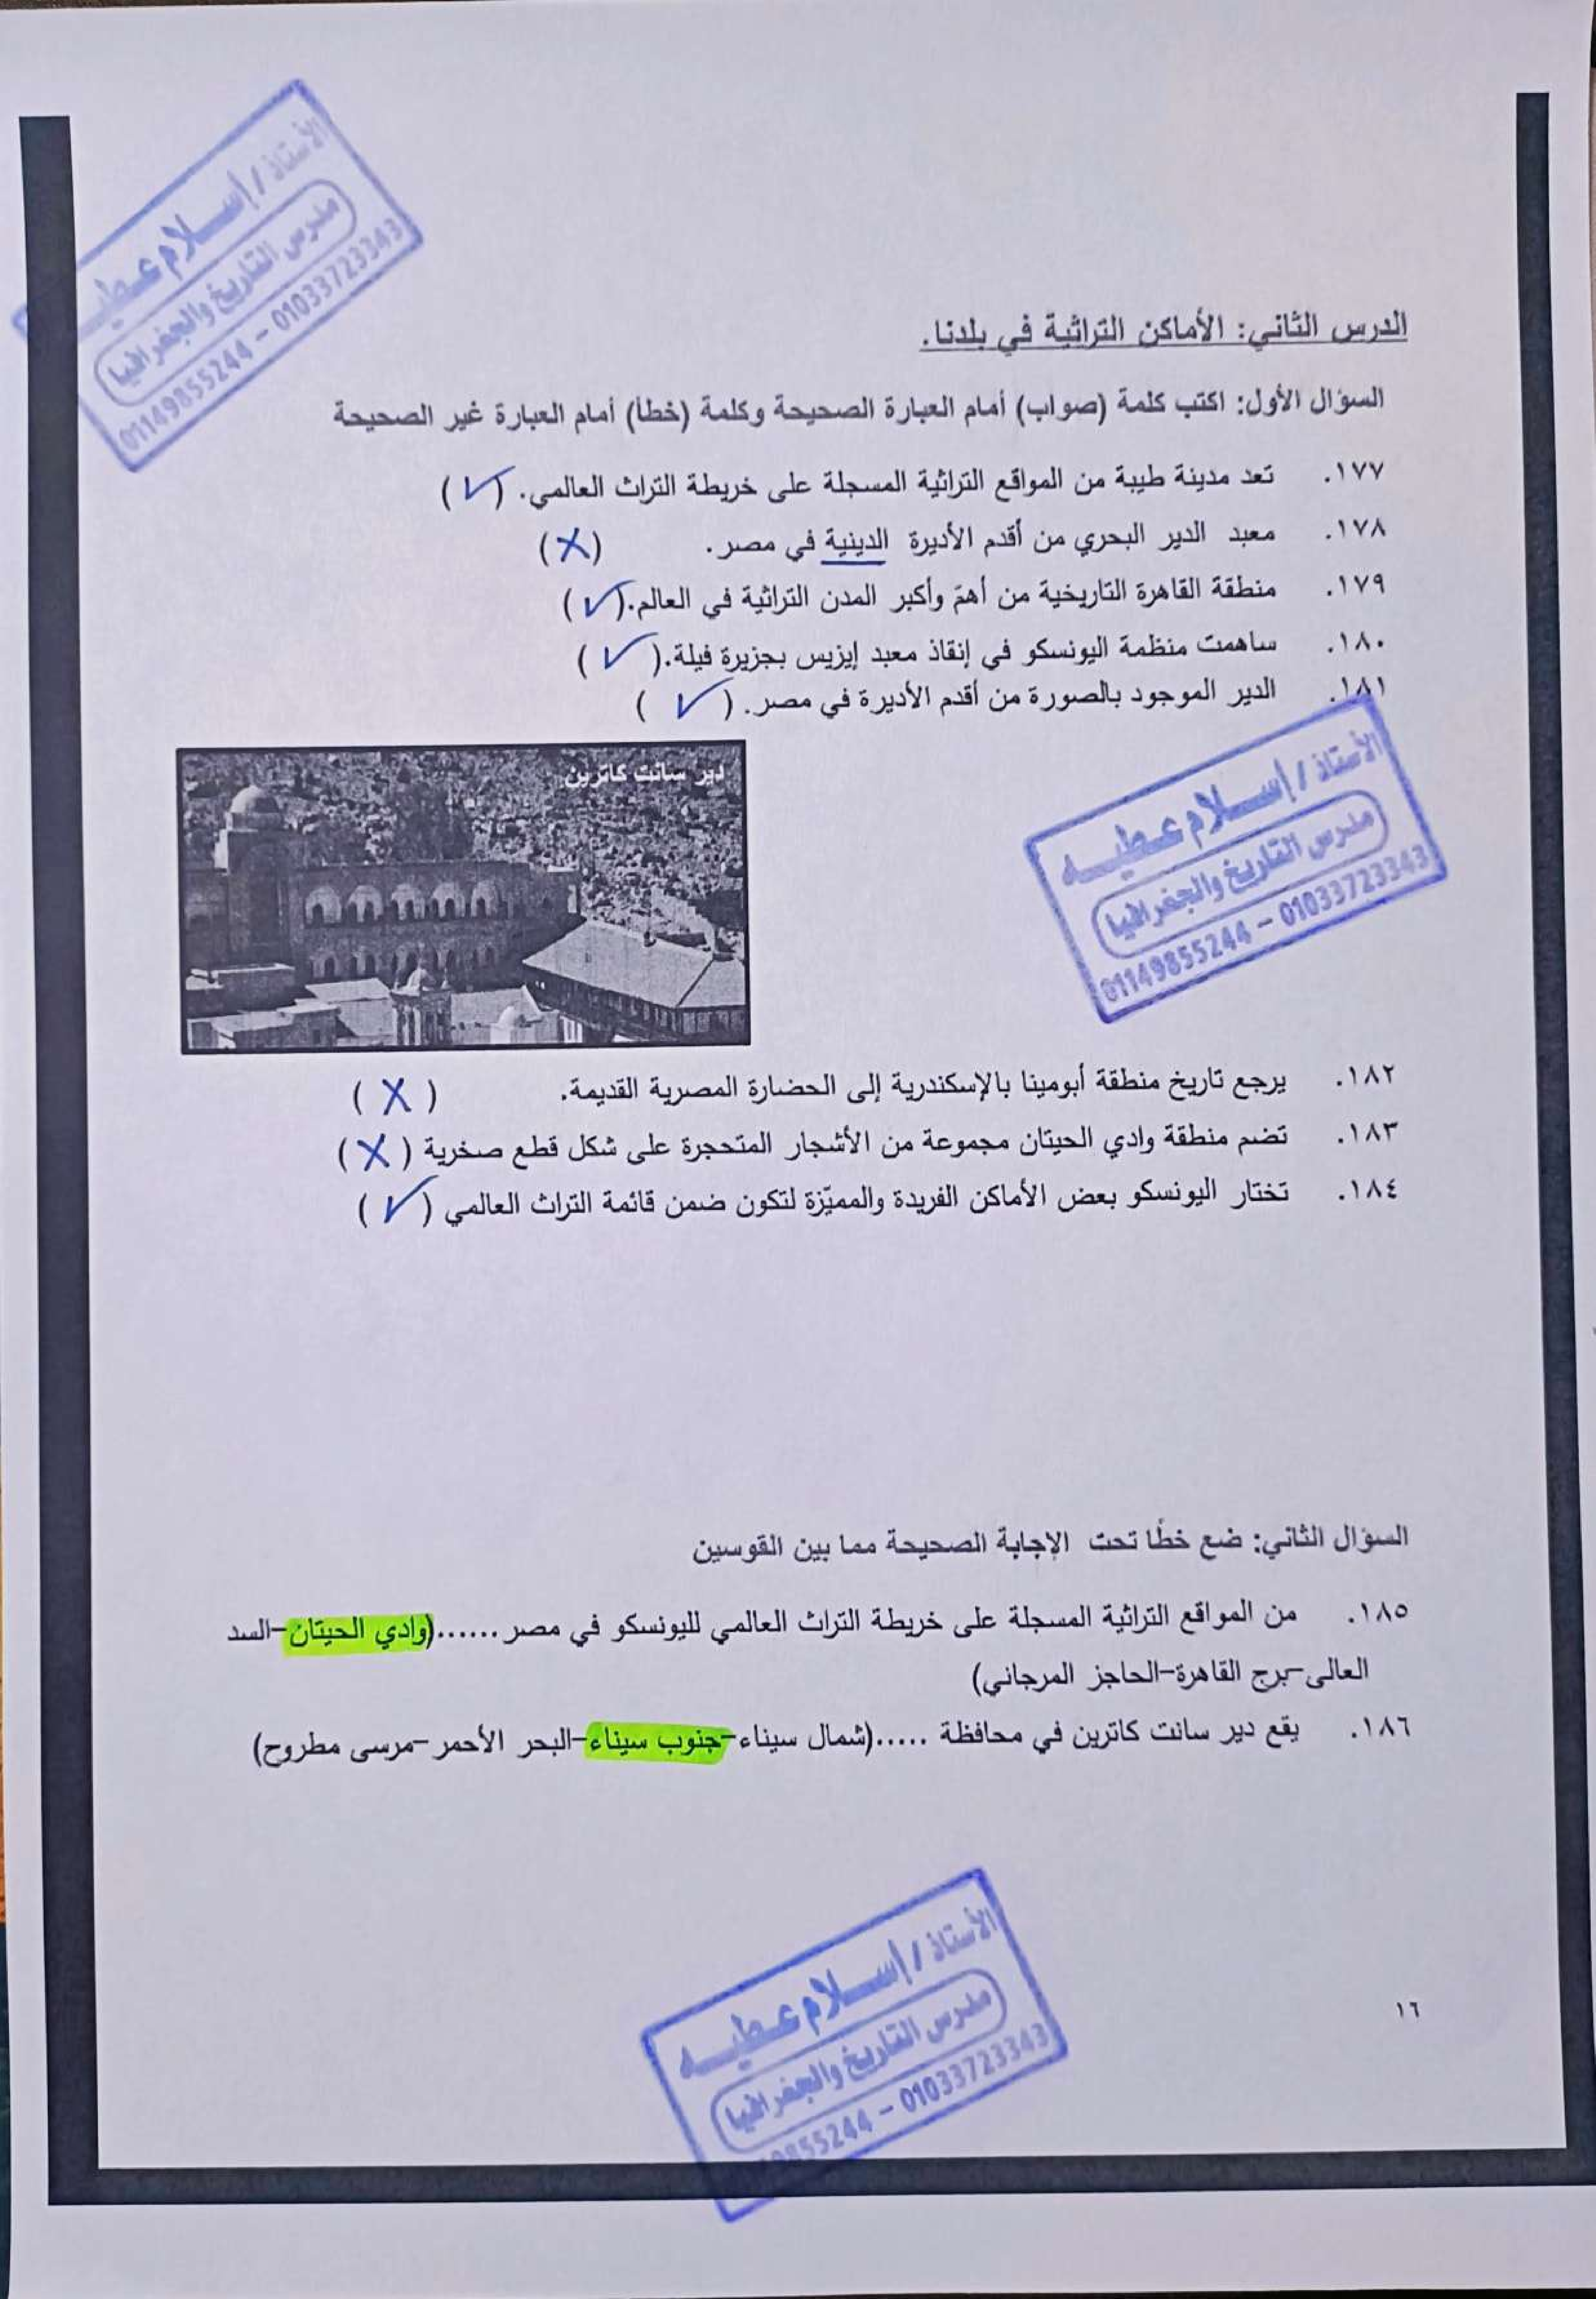 الأستاذ / إسلام عطيـ
مدرس التاريخ والجغرافيا
01149855244 - 01033723343
الدرس الثاني: الأماكن التراثية في بلدنا.
السؤال الأول: اكتب كلمة (صواب) أمام العبارة الصحيحة وكلمة (خطأ) أمام العبارة غير الصحيحة
١٧٧. تعد مدينة طيبة من المواقع التراثية المسجلة على خريطة التراث العالمي. (✓)
١٧٨. معبد الدير البحري من أقدم الأديرة الدينية في مصر. (X)
١٧٩. منطقة القاهرة التاريخية من أهمّ وأكبر المدن التراثية في العالم.(✓)
١٨٠. ساهمت منظمة اليونسكو في إنقاذ معبد إيزيس بجزيرة فيلة.(✓)
١٨١. الدير الموجود بالصورة من أقدم الأديرة في مصر. (✓)
دير سانت كاترين
الأستاذ / إسلام عطيـه
مدرس التاريخ والجغرافيا
01149855244 - 01033723343
١٨٢. يرجع تاريخ منطقة أبومينا بالإسكندرية إلى الحضارة المصرية القديمة. (X)
١٨٣. تضم منطقة وادي الحيتان مجموعة من الأشجار المتحجرة على شكل قطع صخرية (X)
١٨٤. تختار اليونسكو بعض الأماكن الفريدة والمميّزة لتكون ضمن قائمة التراث العالمي (✓)
السؤال الثاني: ضع خطًا تحت الإجابة الصحيحة مما بين القوسين
١٨٥. من المواقع التراثية المسجلة على خريطة التراث العالمي لليونسكو في مصر ......(وادي الحيتان-السد
العالى-برج القاهرة-الحاجز المرجاني)
١٨٦. يقع دير سانت كاترين في محافظة .....(شمال سيناء-جنوب سيناء-البحر الأحمر-مرسى مطروح)
١٦
الأستاذ / إسلام عطيـه
مدرس التاريخ والجغرافيا
9855244 - 01033723343